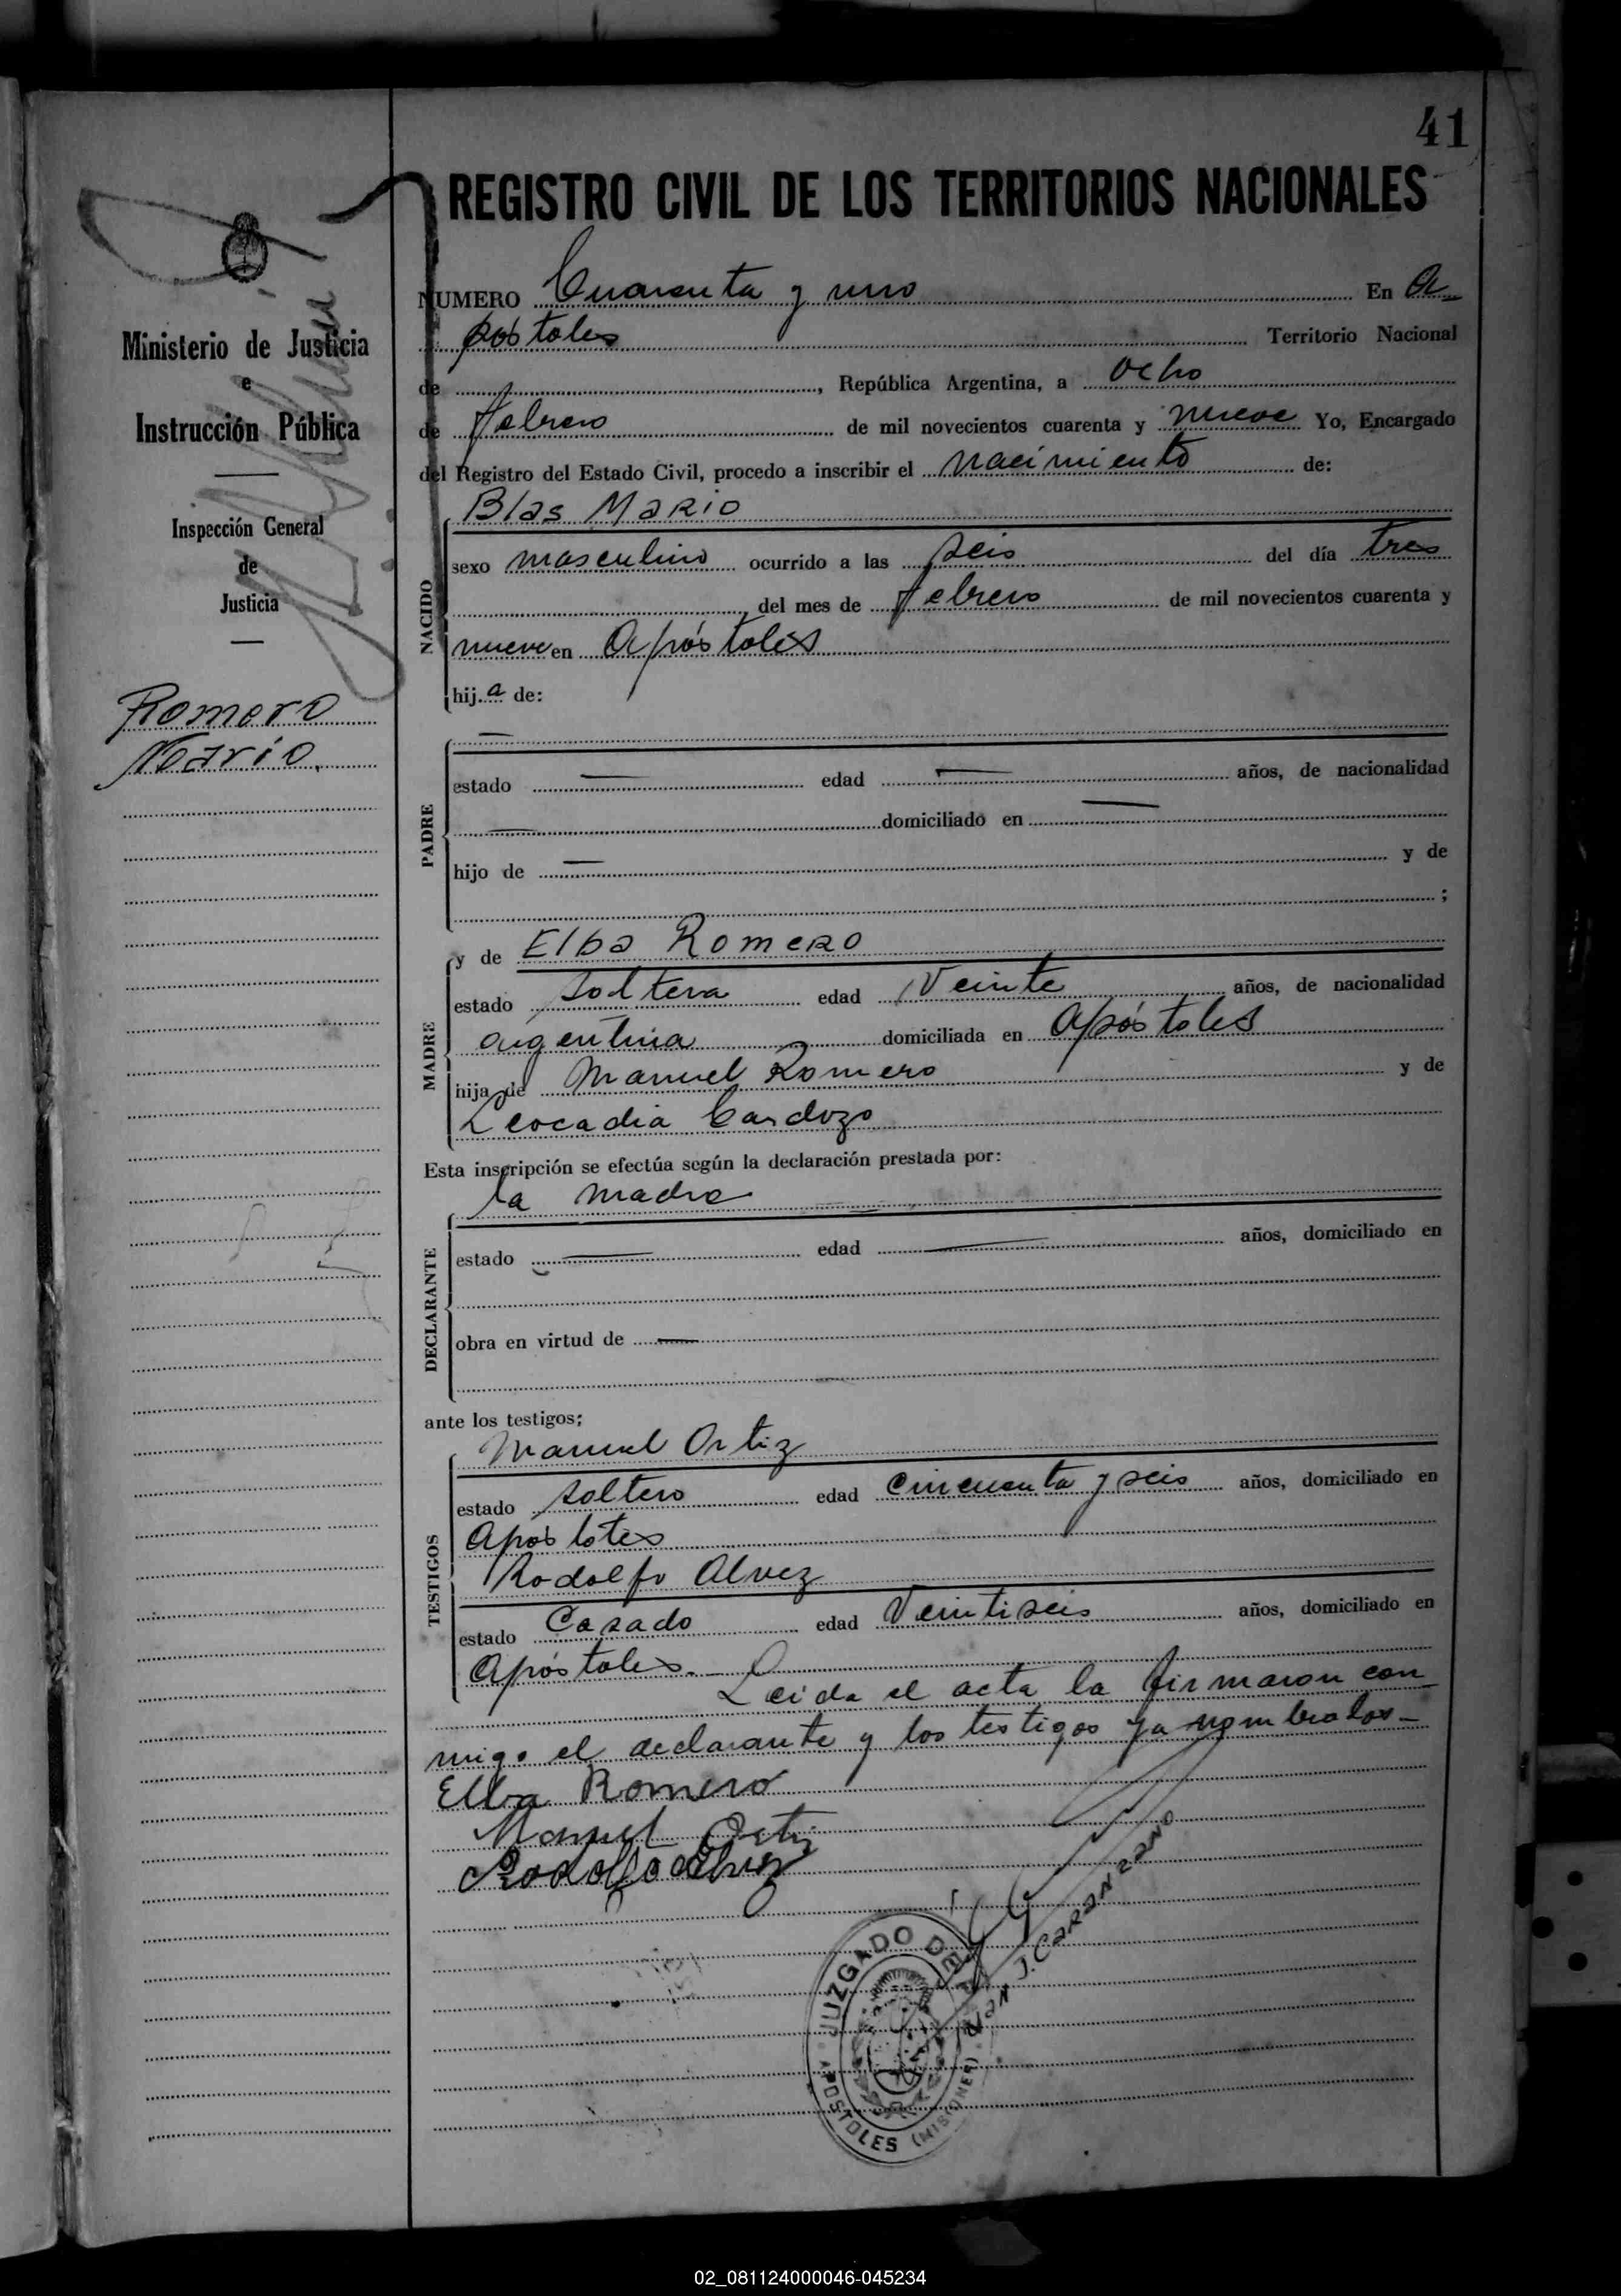 41
REGISTRO CIVIL DE LOS TERRITORIOS NACIONALES
NUMERO Cuarenta y uno En A
póstoles Territorio Nacional
de , República Argentina, a ocho
de febrero de mil novecientos cuarenta y nueve Yo, Encargado
del Registro del Estado Civil, procedo a inscribir el nacimiento de:
Blas Mario
NACIDO
sexo masculino ocurrido a las seis del día tres
del mes de febrero de mil novecientos cuarenta y
nueve en Apóstoles
hij.a de:
PADRE
estado — edad — años, de nacionalidad
— domiciliado en —
hijo de — y de
;
y de Elba Romero
MADRE
estado soltera edad Veinte años, de nacionalidad
argentina domiciliada en Apóstoles
hija de Manuel Romero y de
Leocadia Cardozo
Esta inscripción se efectúa según la declaración prestada por:
la madre
DECLARANTE
estado — edad — años, domiciliado en
obra en virtud de —
ante los testigos;
Manuel Ortiz
TESTIGOS
estado soltero edad cincuenta y seis años, domiciliado en
Apóstoles
Rodolfo Alvez
estado Casado edad Veintiseis años, domiciliado en
Apóstoles.—
Leida el acta la firmaron con
migo el declarante y los testigos ya nombrados—
Elba Romero
Manuel Ortiz
Rodolfo Alvez
JUZGADO DE
APOSTOLES (MISIONES)
Ministerio de Justicia
e
Instrucción Pública
Inspección General
de
Justicia
Romero
Mario.
02_081124000046-045234